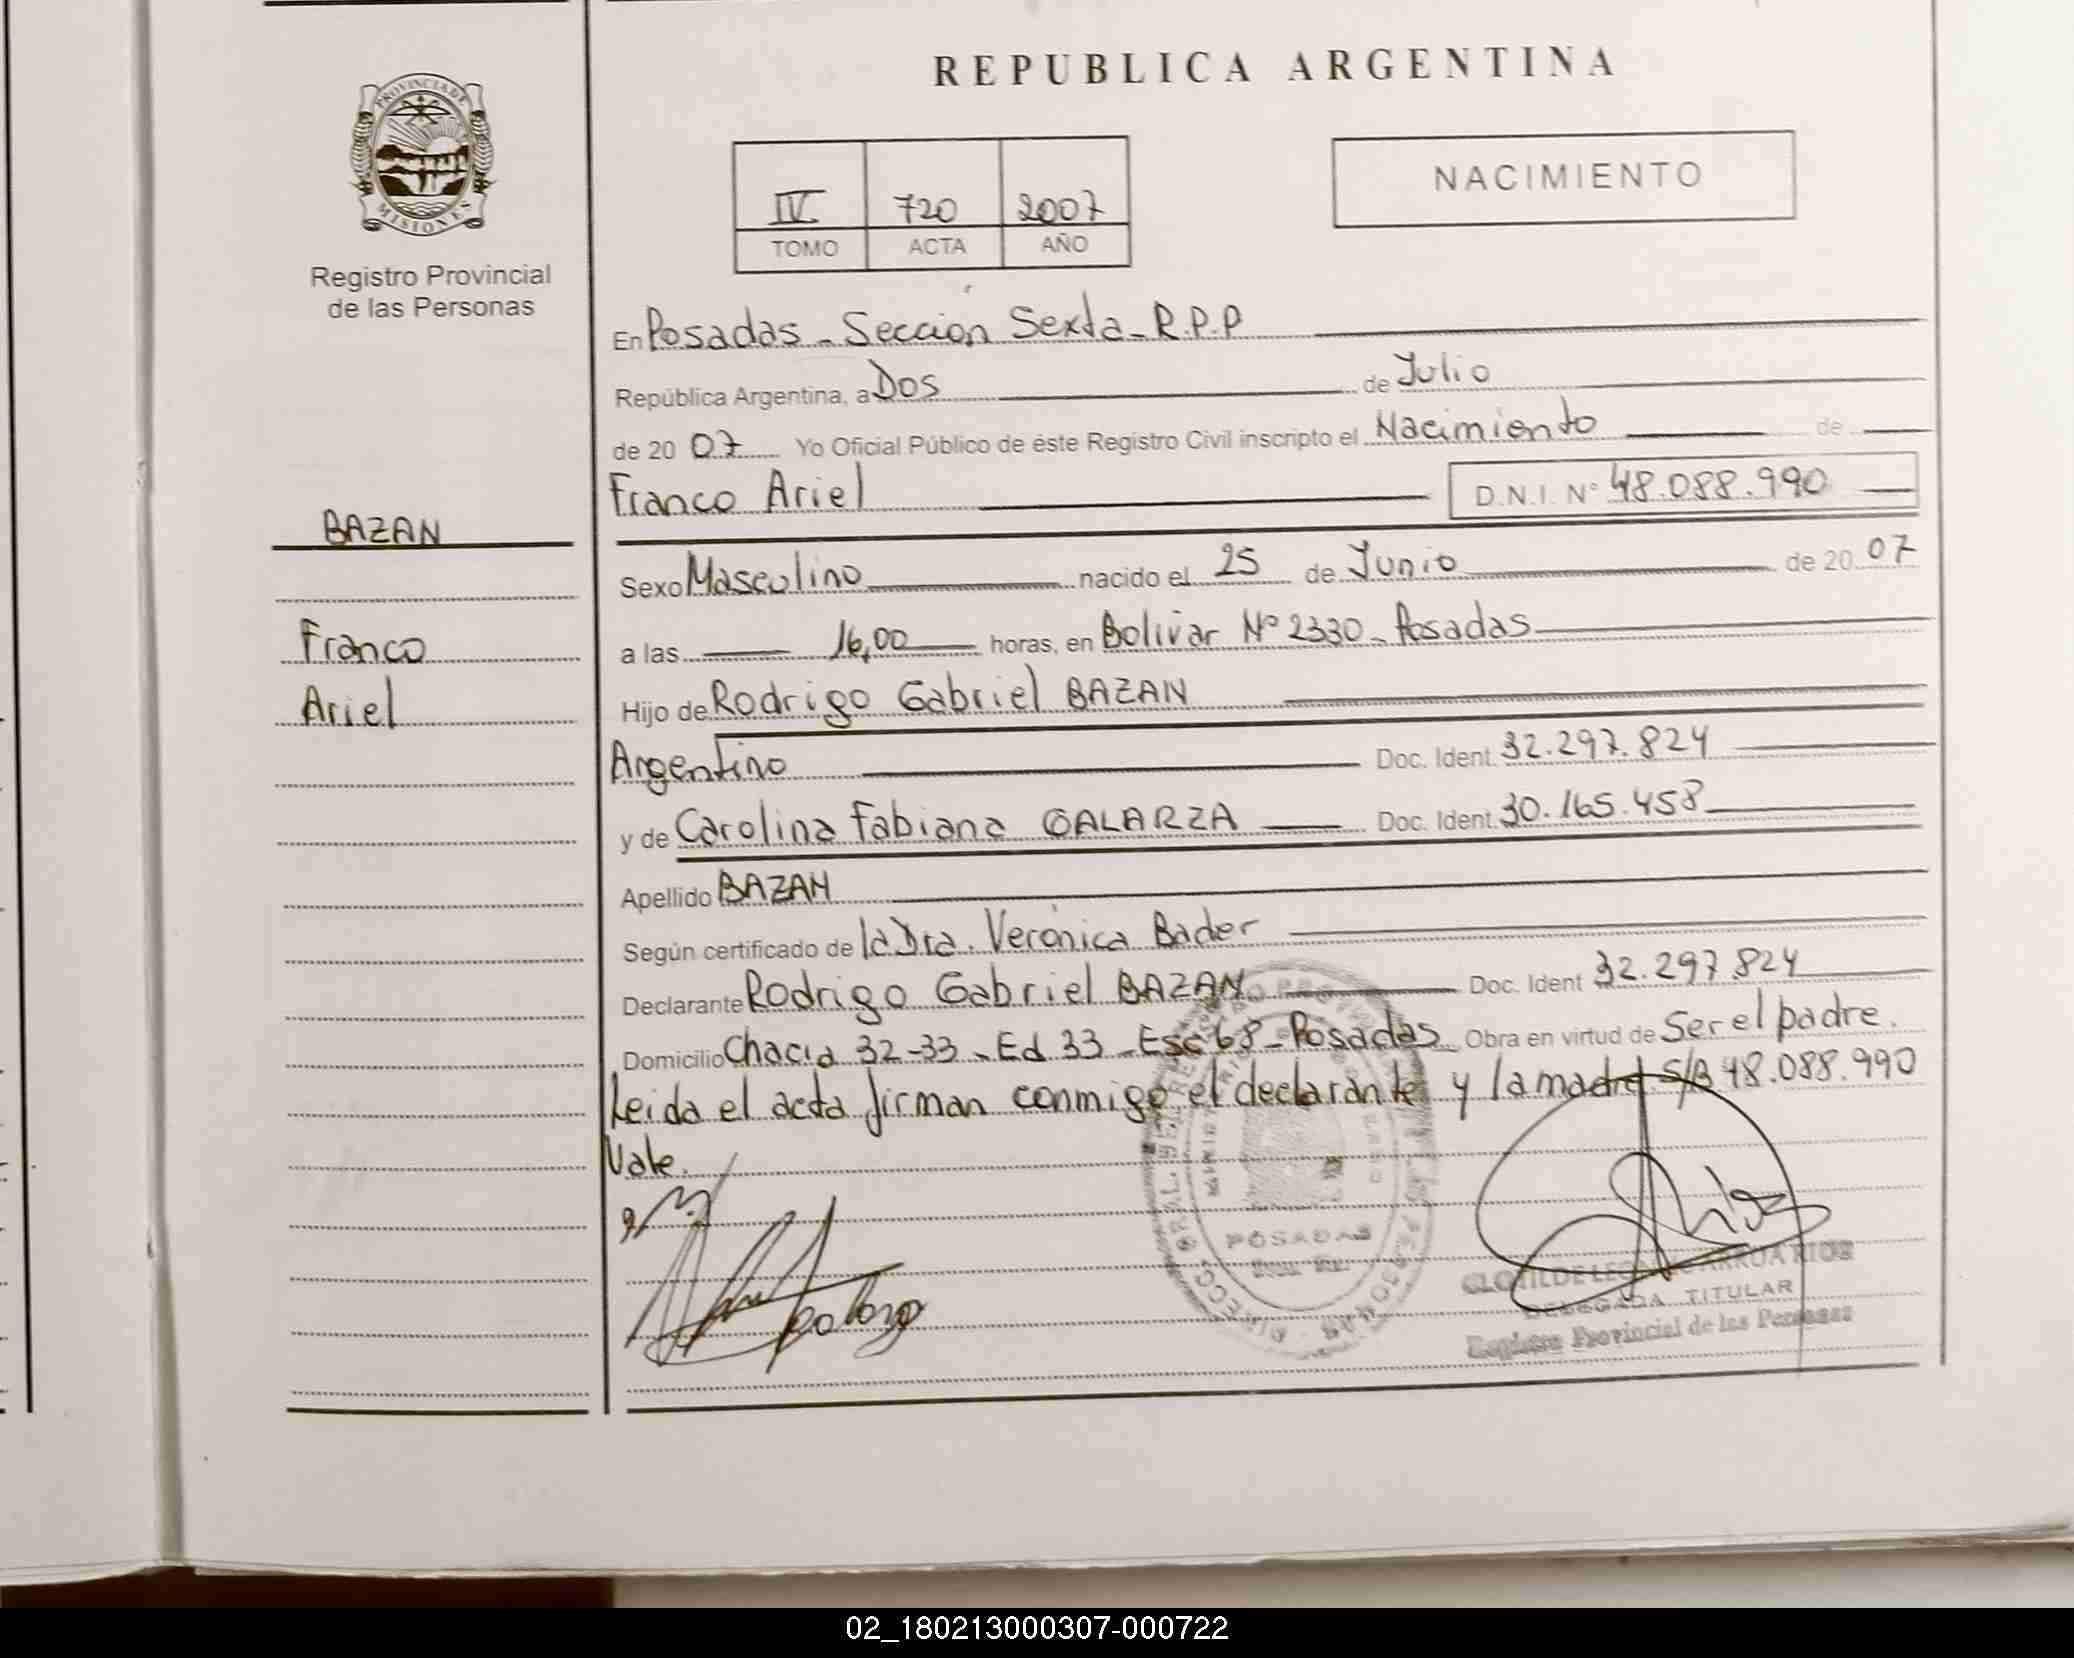 REPUBLICA ARGENTINA
PROVINCIA DE
MISIONES
Registro Provincial
de las Personas
IV 720 2007
TOMO ACTA AÑO
NACIMIENTO
En Posadas - Sección Sexta - R.P.P
República Argentina, a Dos de Julio
de 20 07 Yo Oficial Público de éste Registro Civil inscripto el Nacimiento de
Franco Ariel D.N.I. Nº 48.088.990
BAZAN
Franco
Ariel
Sexo Masculino nacido el 25 de Junio de 20 07
a las 16,00 horas, en Bolivar Nº 2330 - Posadas
Hijo de Rodrigo Gabriel BAZAN
Argentino Doc. Ident. 32.297.824
y de Carolina Fabiana GALARZA Doc. Ident. 30.165.458
Apellido BAZAN
Según certificado de la Dra. Verónica Bader
Declarante Rodrigo Gabriel BAZAN Doc. Ident 32.297.824
Domicilio Chacra 32-33 - Ed 33 - Esc 68 - Posadas Obra en virtud de Ser el padre.
Leida el acta firman conmigo el declarante y la madre S/B 48.088.990
Vale.
POSADAS
DELEGADA TITULAR
Registro Provincial de las Personas
02_180213000307-000722